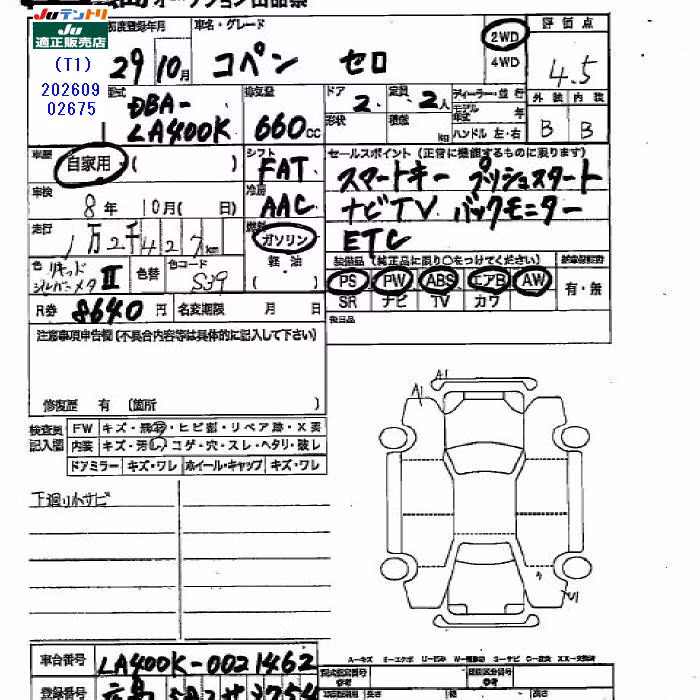 オークション出品票
Juテントリ
Ju
適正販売店
(T1)
202609
02675
初度登録年月 車名・グレード
29年10月 コペン セロ
2WD
4WD
評価点
4.5
型式 DBA-
LA400K
排気量
660cc
ドア 2 定員 2人
形状 積載 kg
ディーラー・並行
モデル 年式 年
ハンドル 左・右
外装 内装
B B
車歴 自家用・( )
シフト
FAT
セールスポイント (正常に機能するものに限ります)
スマートキー プッシュスタート
ナビTV バックモニター
ETC
車検
8年 10月( 日)
冷房
AAC
走行
1万2千427km
燃料
ガソリン
軽油
( )
色 リキッドシルバーメタII
色替
色コード
S39
装備品 (純正品に限り○をつけてください)
PS PW ABS エアB AW
SR ナビ TV カワ
新車保証書
有・無
R券 8640円 名変期限 月 日
後日品
注意事項申告欄(不具合内容等は具体的に記入して下さい)
修復歴 有 〔箇所 〕
検査員
記入欄
FW キズ・飛石・ヒビ割・リペア跡・X要
内装 キズ・汚レ・コゲ・穴・スレ・ヘタリ・破レ
ドアミラー キズ・ワレ ホイール・キャップ キズ・ワレ
下廻り小サビ
A1
A1
車台番号 LA400K-0021462
登録番号 広島
A-キズ E-エクボ